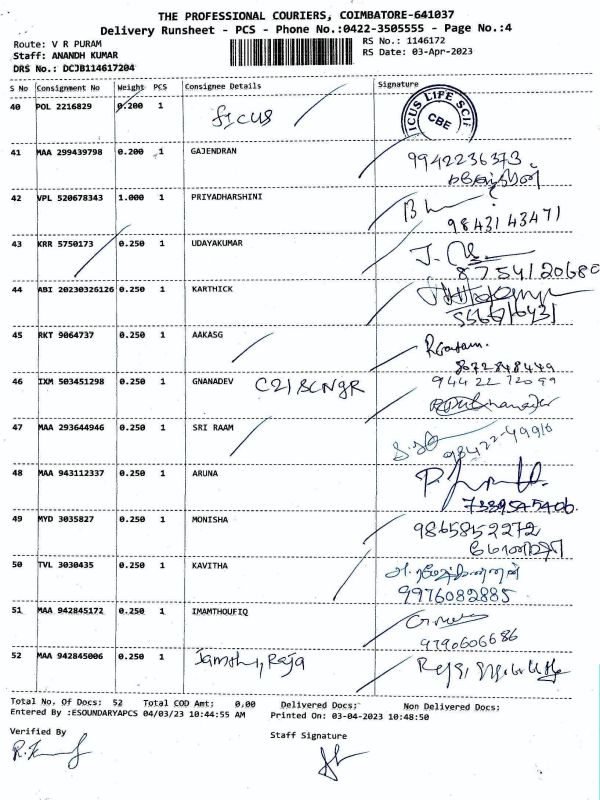 THE PROFESSIONAL COURIERS, COIMBATORE-641037
Delivery Runsheet - PCS - Phone No.:0422-3505555 - Page No.:4
Route: V R PURAM
RS No.: 1146172
Staff: ANANDH KUMAR
RS Date: 03-Apr-2023
DRS No.: DCJB114617204
S No Consignment No Weight PCS Consignee Details Signature
40 POL 2216829 0.200 1 ficus
ICUS LIFE SCI
CBE
41 MAA 299439798 0.200 1 GAJENDRAN
9942236373
42 VPL 520678343 1.000 1 PRIYADHARSHINI
9843143471
43 KRR 5750173 0.250 1 UDAYAKUMAR
8754120680
44 ABI 20230326126 0.250 1 KARTHICK
45 RKT 9064737 0.250 1 AAKASG
8072848449
46 IXM 503451298 0.250 1 GNANADEV
47 MAA 293644946 0.250 1 SRI RAAM
98422-49916
48 MAA 943112337 0.250 1 ARUNA
49 MYD 3035827 0.250 1 MONISHA
9865852272
மோனிஷா
50 TVL 3030435 0.250 1 KAVITHA
9976082885
51 MAA 942845172 0.250 1 IMAMTHOUFIQ
9790606686
52 MAA 942845006 0.250 1 Raja
Total No. Of Docs: 52 Total COD Amt; 0.00 Delivered Docs; Non Delivered Docs;
Entered By :ESOUNDARYAPCS 04/03/23 10:44:55 AM Printed On: 03-04-2023 10:48:50
Verified By
Staff Signature